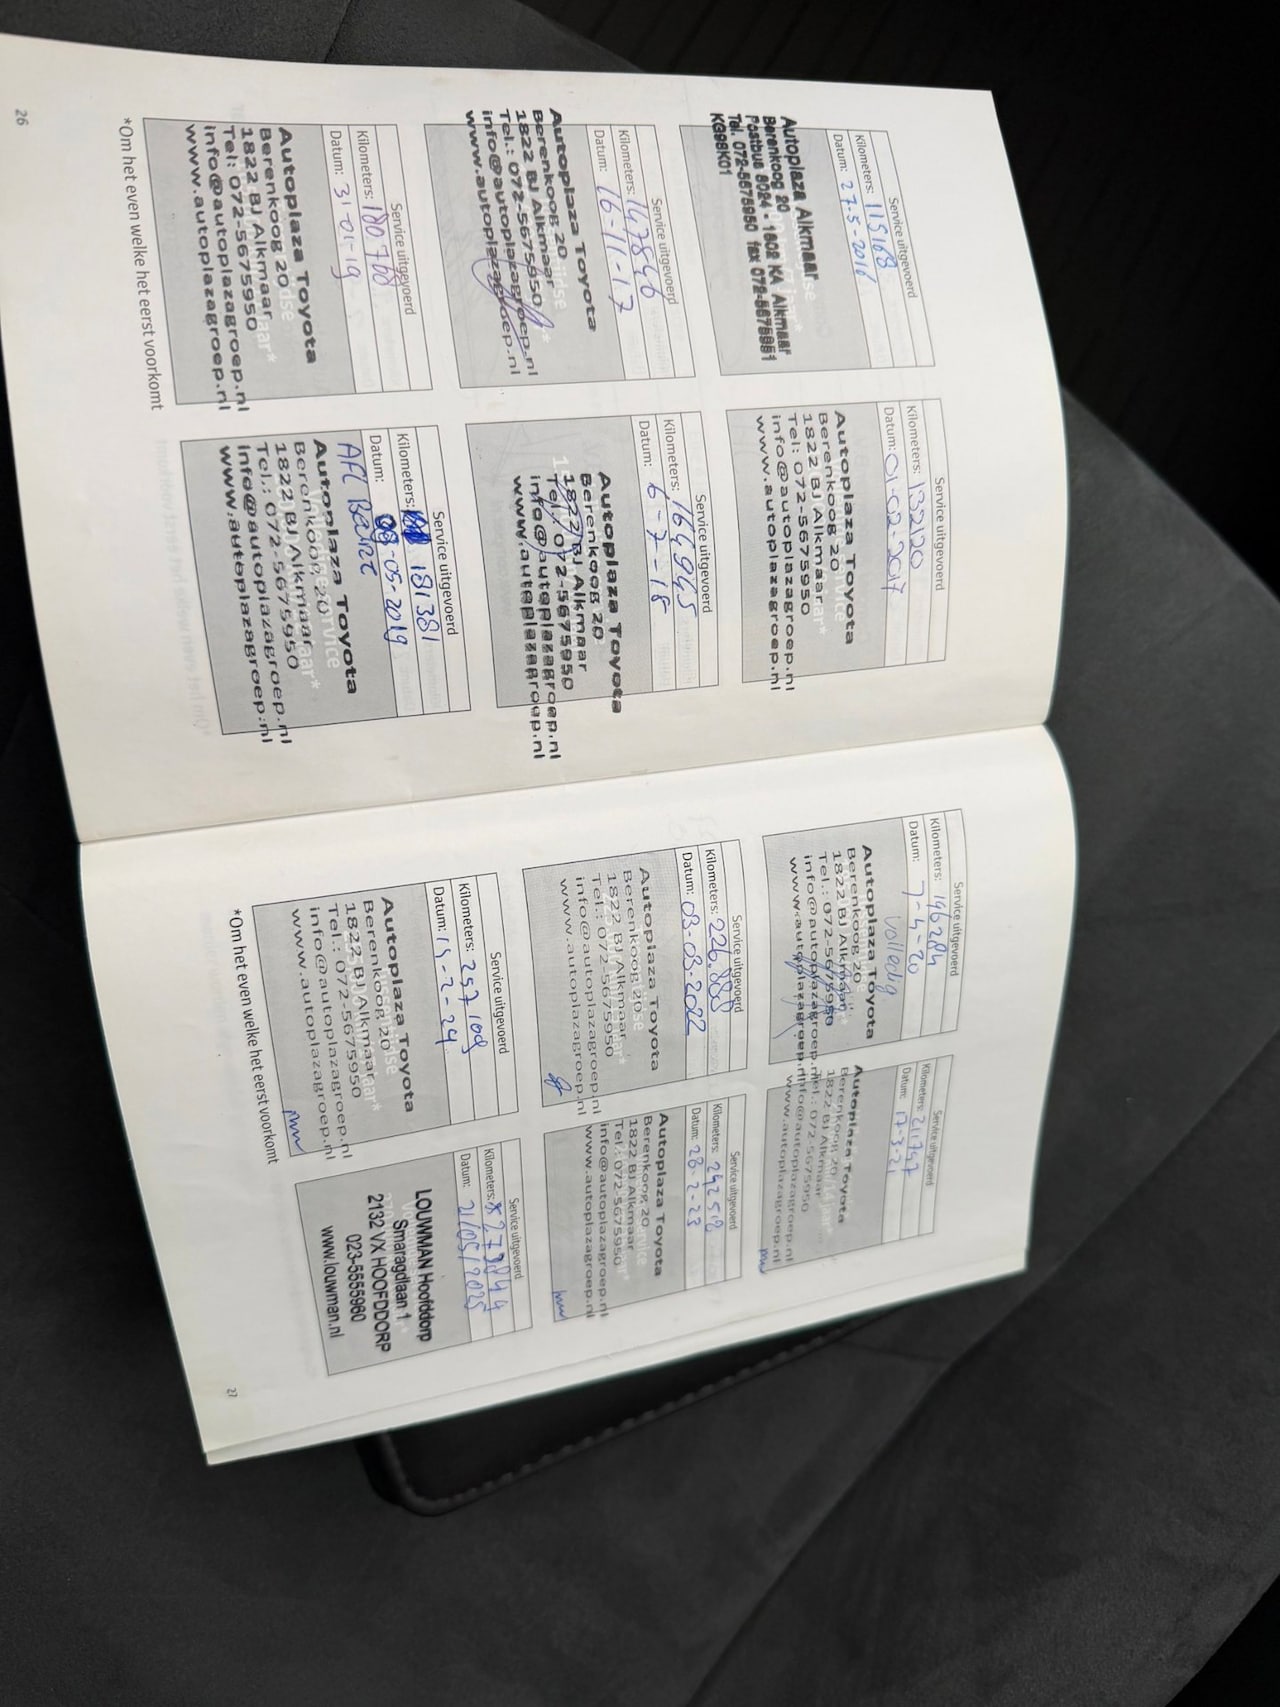 Service uitgevoerd
Kilometers: 115168
Datum: 27-5-2016
Autoplaza Alkmaar
Berenkoog 20
Postbus 8024 - 1802 KA Alkmaar
Tel. 072-5675950 fax 072-5675951
KG98K01
Service uitgevoerd
Kilometers: 132120
Datum: 01-02-2017
Autoplaza Toyota
Berenkoog 20
1822 BJ Alkmaar
Tel: 072-5675950
info@autoplazagroep.nl
www.autoplazagroep.nl
Service uitgevoerd
Kilometers: 147846
Datum: 16-11-17
Autoplaza Toyota
Berenkoog 20
1822 BJ Alkmaar
Tel.: 072-5675950
info@autoplazagroep.nl
www.autoplazagroep.nl
Service uitgevoerd
Kilometers: 164945
Datum: 6-7-18
Autoplaza Toyota
Berenkoog 20
1822 BJ Alkmaar
Tel.: 072-5675950
info@autoplazagroep.nl
www.autoplazagroep.nl
Service uitgevoerd
Kilometers: 180760
Datum: 31-01-19
Autoplaza Toyota
Berenkoog 20
1822 BJ Alkmaar
Tel: 072-5675950
info@autoplazagroep.nl
www.autoplazagroep.nl
Service uitgevoerd
Kilometers: 181381
Datum: 08-05-2019
AFL Beurt
Autoplaza Toyota
Berenkoog 20
1822 BJ Alkmaar
Tel.: 072-5675950
info@autoplazagroep.nl
www.autoplazagroep.nl
*Om het even welke het eerst voorkomt
26
Service uitgevoerd
Kilometers: 196284
Datum: 7-4-20
volledig
Autoplaza Toyota
Berenkoog 20
1822 BJ Alkmaar
Tel.: 072-5675950
info@autoplazagroep.nl
www.autoplazagroep.nl
Service uitgevoerd
Kilometers: 211797
Datum: 17-3-21
Autoplaza Toyota
Berenkoog 20
1822 BJ Alkmaar
Tel.: 072-5675950
info@autoplazagroep.nl
www.autoplazagroep.nl
Service uitgevoerd
Kilometers: 226.888
Datum: 03-03-2022
Autoplaza Toyota
Berenkoog 20
1822 BJ Alkmaar
Tel.: 072-5675950
info@autoplazagroep.nl
www.autoplazagroep.nl
Service uitgevoerd
Kilometers: 242518
Datum: 28-2-23
Autoplaza Toyota
Berenkoog 20
1822 BJ Alkmaar
Tel.: 072-5675950
info@autoplazagroep.nl
www.autoplazagroep.nl
Service uitgevoerd
Kilometers: 257109
Datum: 15-2-24
Autoplaza Toyota
Berenkoog 20
1822 BJ Alkmaar
Tel.: 072-5675950
info@autoplazagroep.nl
www.autoplazagroep.nl
Service uitgevoerd
Kilometers: 273844
Datum: 21/05/2025
LOUWMAN Hoofddorp
Smaragdlaan 1
2132 VX HOOFDDORP
023-5555960
www.louwman.nl
*Om het even welke het eerst voorkomt
27